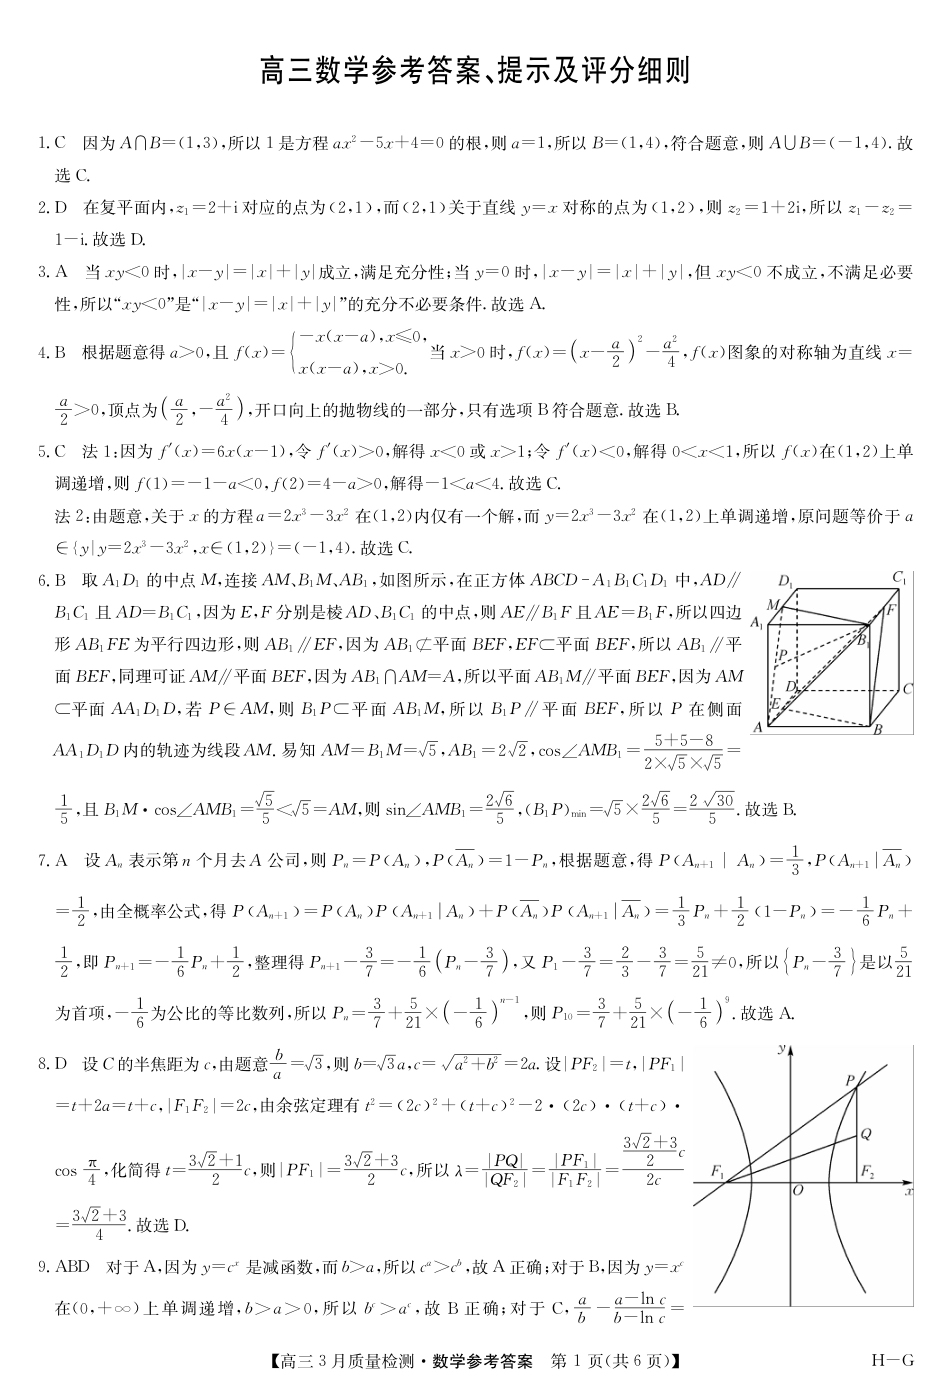 高三数学参考答案、提示及评分细则
1. C 因为 A∩B=(1,3),所以 1 是方程 ax²-5x+4=0 的根,则 a=1,所以 B=(1,4),符合题意,则 A∪B=(-1,4). 故
选 C.
2. D 在复平面内,z₁=2+i 对应的点为(2,1),而(2,1)关于直线 y=x 对称的点为(1,2),则 z₂=1+2i,所以 z₁-z₂=
1-i. 故选 D.
3. A 当 xy<0 时,|x-y|=|x|+|y|成立,满足充分性;当 y=0 时,|x-y|=|x|+|y|,但 xy<0 不成立,不满足必要
性,所以“xy<0”是“|x-y|=|x|+|y|”的充分不必要条件. 故选 A.
4. B 根据题意得 a>0,且 f(x)={-x(x-a),x≤0, x(x-a),x>0. 当 x>0 时,f(x)=(x-a/2)²-a²/4,f(x)图象的对称轴为直线 x=
a/2>0,顶点为(a/2,-a²/4),开口向上的抛物线的一部分,只有选项 B 符合题意. 故选 B.
5. C 法 1:因为 f′(x)=6x(x-1),令 f′(x)>0,解得 x<0 或 x>1;令 f′(x)<0,解得 0<x<1,所以 f(x)在(1,2)上单
调递增,则 f(1)=-1-a<0,f(2)=4-a>0,解得-1<a<4. 故选 C.
法 2:由题意,关于 x 的方程 a=2x³-3x² 在(1,2)内仅有一个解,而 y=2x³-3x² 在(1,2)上单调递增,原问题等价于 a
∈{y|y=2x³-3x²,x∈(1,2)}=(-1,4). 故选 C.
6. B 取 A₁D₁ 的中点 M,连接 AM、B₁M、AB₁,如图所示,在正方体 ABCD-A₁B₁C₁D₁ 中,AD∥
B₁C₁ 且 AD=B₁C₁,因为 E,F 分别是棱 AD、B₁C₁ 的中点,则 AE∥B₁F 且 AE=B₁F,所以四边
形 AB₁FE 为平行四边形,则 AB₁∥EF,因为 AB₁⊄平面 BEF,EF⊂平面 BEF,所以 AB₁∥平
面 BEF,同理可证 AM∥平面 BEF,因为 AB₁∩AM=A,所以平面 AB₁M∥平面 BEF,因为 AM
⊂平面 AA₁D₁D,若 P∈AM,则 B₁P⊂平面 AB₁M,所以 B₁P∥平面 BEF,所以 P 在侧面
AA₁D₁D 内的轨迹为线段 AM. 易知 AM=B₁M=√5,AB₁=2√2,cos∠AMB₁=(5+5-8)/(2×√5×√5)=
1/5,且 B₁M·cos∠AMB₁=√5/5<√5=AM,则 sin∠AMB₁=2√6/5,(B₁P)min=√5×2√6/5=2√30/5. 故选 B.
D₁ C₁
M F
A₁ B₁
P
D C
E
A B
7. A 设 Aₙ 表示第 n 个月去 A 公司,则 Pₙ=P(Aₙ),P(A̅ₙ)=1-Pₙ,根据题意,得 P(Aₙ₊₁|Aₙ)=1/3,P(Aₙ₊₁|A̅ₙ)
=1/2,由全概率公式,得 P(Aₙ₊₁)=P(Aₙ)P(Aₙ₊₁|Aₙ)+P(A̅ₙ)P(Aₙ₊₁|A̅ₙ)=1/3Pₙ+1/2(1-Pₙ)=-1/6Pₙ+
1/2,即 Pₙ₊₁=-1/6Pₙ+1/2,整理得 Pₙ₊₁-3/7=-1/6(Pₙ-3/7),又 P₁-3/7=2/3-3/7=5/21≠0,所以{Pₙ-3/7}是以5/21
为首项,-1/6为公比的等比数列,所以 Pₙ=3/7+5/21×(-1/6)ⁿ⁻¹,则 P₁₀=3/7+5/21×(-1/6)⁹. 故选 A.
8. D 设 C 的半焦距为 c,由题意 b/a=√3,则 b=√3a,c=√(a²+b²)=2a. 设|PF₂|=t,|PF₁|
=t+2a=t+c,|F₁F₂|=2c,由余弦定理有 t²=(2c)²+(t+c)²-2·(2c)·(t+c)·
cos π/4,化简得 t=(3√2+1)/2 c,则|PF₁|=(3√2+3)/2 c,所以 λ=|PQ|/|QF₂|=|PF₁|/|F₁F₂|=((3√2+3)/2 c)/2c
=(3√2+3)/4. 故选 D.
y
P
Q
F₁ O F₂ x
9. ABD 对于 A,因为 y=cˣ 是减函数,而 b>a,所以 cᵃ>cᵇ,故 A 正确;对于 B,因为 y=xᶜ
在(0,+∞)上单调递增,b>a>0,所以 bᶜ>aᶜ,故 B 正确;对于 C,a/b-(a-ln c)/(b-ln c)=
【高三 3 月质量检测·数学参考答案 第 1 页(共 6 页)】 H-G